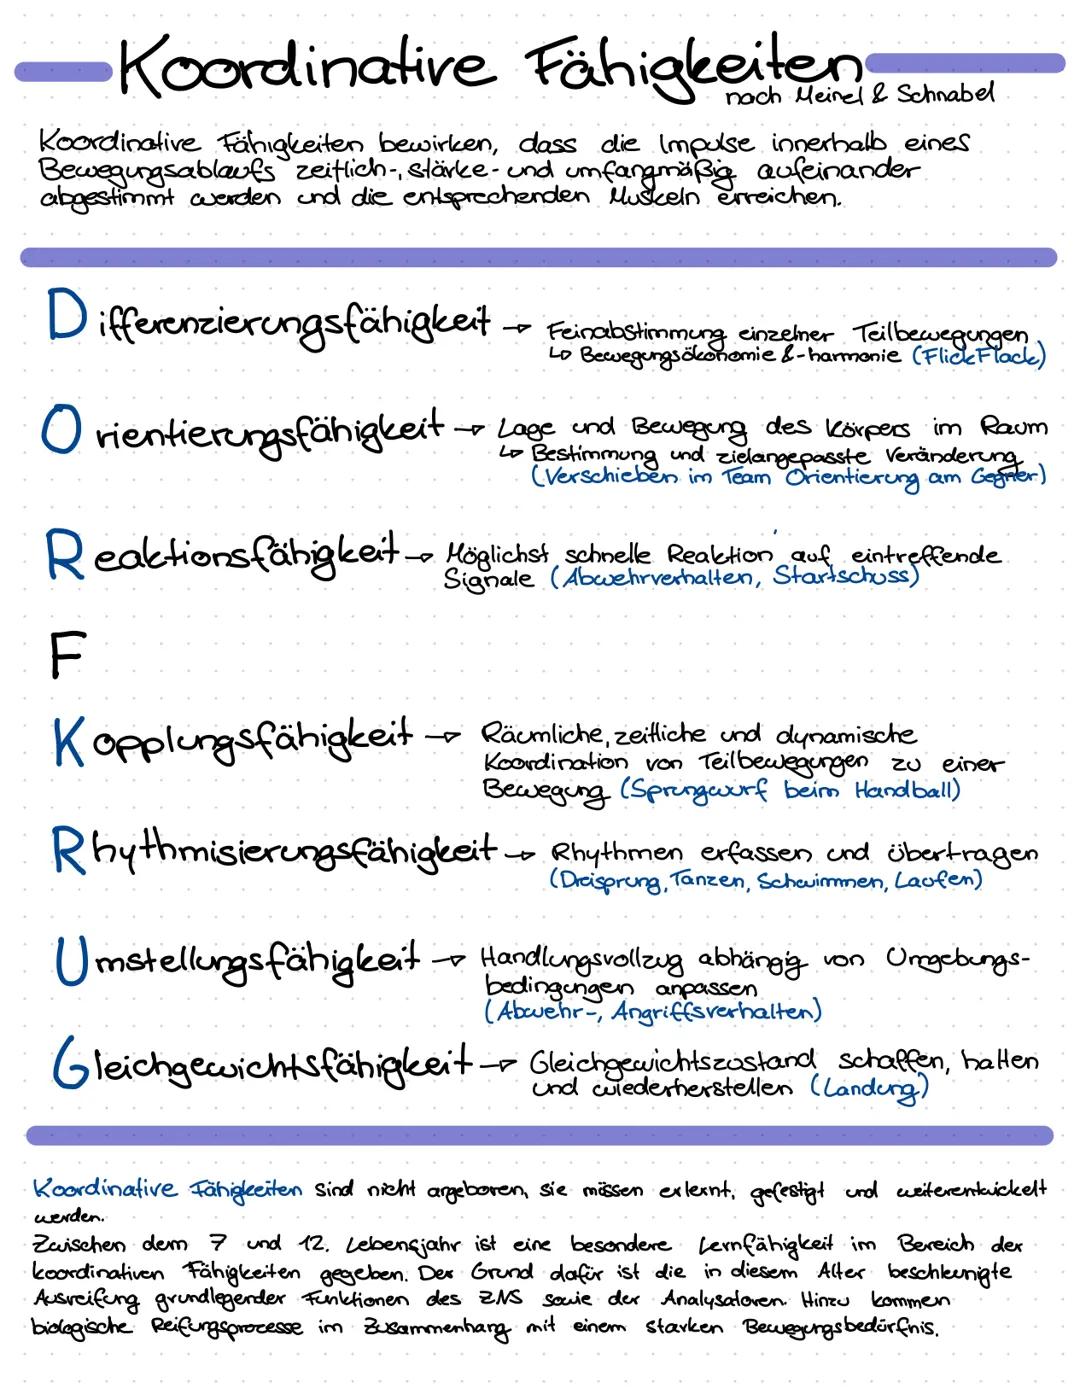 Koordinative Fähigkeiten
nach Meinel & Schnabel
Koordinative Fähigkeiten bewirken, dass die Impulse innerhalb eines
Bewegungsablaufs zeitlich-, stärke- und umfangmäßig aufeinander
abgestimmt werden und die entsprechenden Muskeln erreichen.
Differenzierungsfähigkeit → Feinabstimmung einzelner Teilbewegungen
↳ Bewegungsökonomie & -harmonie (FlickFlack)
Orientierungsfähigkeit → Lage und Bewegung des Körpers im Raum
↳ Bestimmung und zielangepasste Veränderung
(Verschieben im Team Orientierung am Gegner)
Reaktionsfähigkeit → Möglichst schnelle Reaktion auf eintreffende
Signale (Abwehrverhalten, Startschuss)
F
Kopplungsfähigkeit → Räumliche, zeitliche und dynamische
Koordination von Teilbewegungen zu einer
Bewegung (Sprungwurf beim Handball)
Rhythmisierungsfähigkeit → Rhythmen erfassen und übertragen
(Dreisprung, Tanzen, Schwimmen, Laufen)
Umstellungsfähigkeit → Handlungsvollzug abhängig von Umgebungs-
bedingungen anpassen
(Abwehr-, Angriffsverhalten)
Gleichgewichtsfähigkeit → Gleichgewichtszustand schaffen, halten
und wiederherstellen (Landung)
Koordinative Fähigkeiten sind nicht angeboren, sie müssen erlernt, gefestigt und weiterentwickelt
werden.
Zwischen dem 7 und 12. Lebensjahr ist eine besondere Lernfähigkeit im Bereich der
koordinativen Fähigkeiten gegeben. Der Grund dafür ist die in diesem Alter beschleunigte
Ausreifung grundlegender Funktionen des ZNS sowie der Analysatoren. Hinzu kommen
biologische Reifungsprozesse im Zusammenhang mit einem starken Bewegungsbedürfnis.